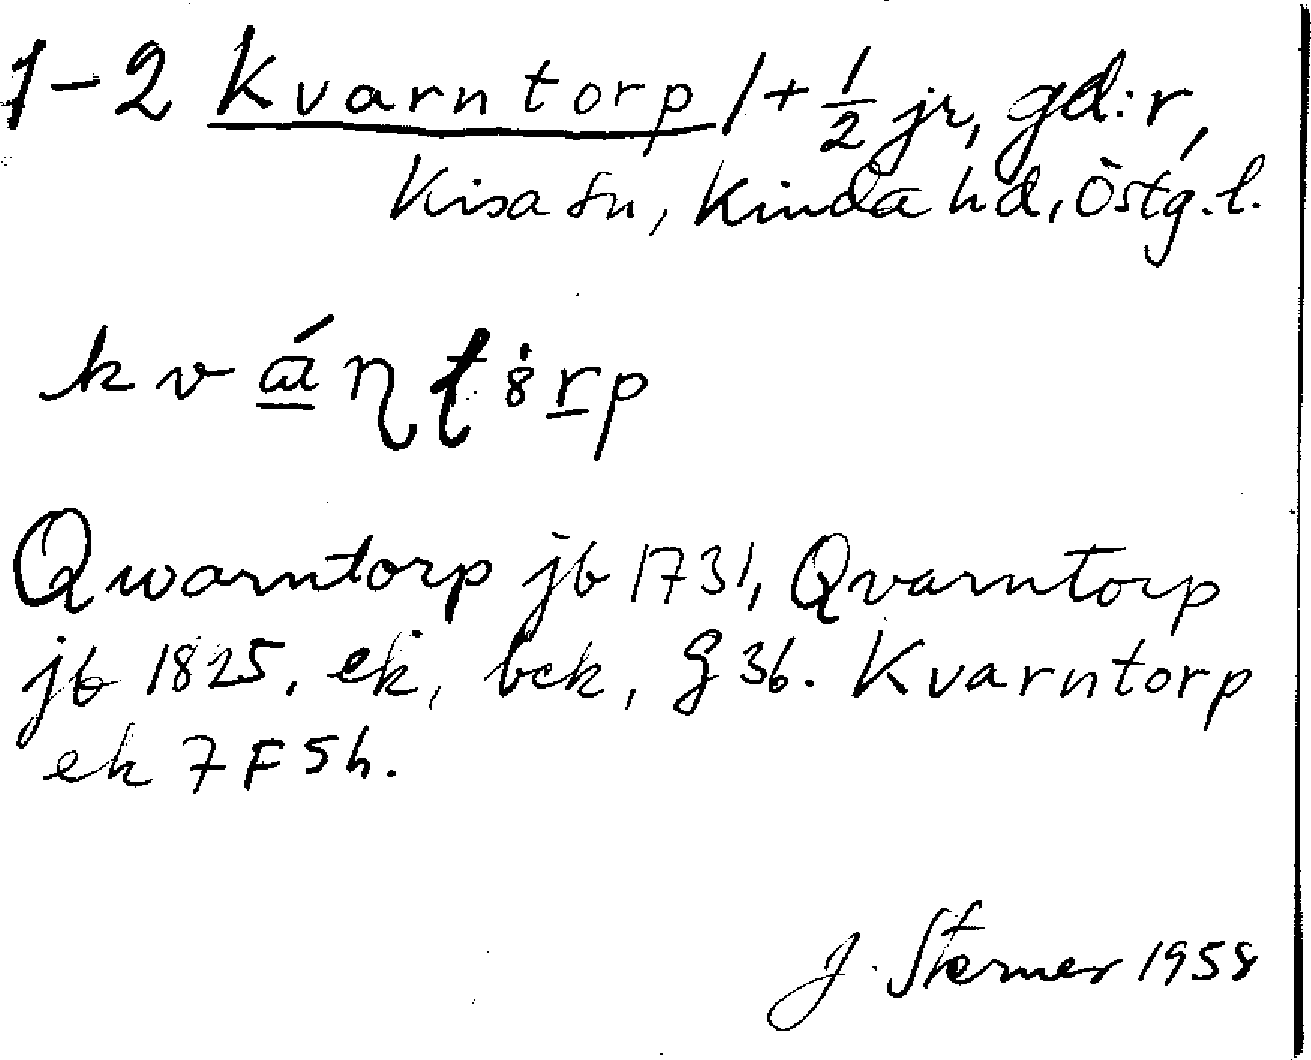 1-2 Kvarntorp 1+½ jr, gd:r,
Kisa sn, Kinda hd, Östg.l.
Qwarntorp jb 1731, Qvarntorp
jb 1825, ek, bek, G 36. Kvarntorp
ek 7 F 5 h.
J. Sterner 1958